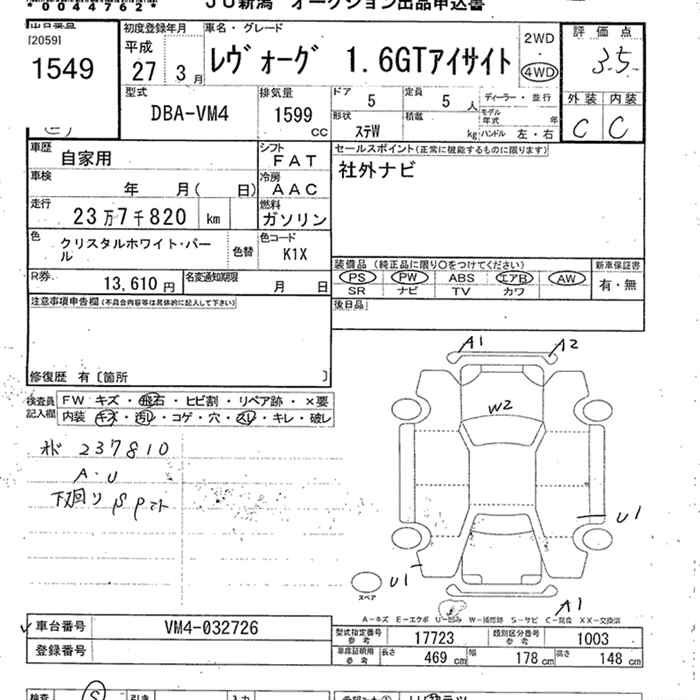 *0044762*
JU新潟 オークション出品申込書
出品番号
[2059]
1549
初度登録年月
平成
27年3月
車名・グレード
レヴォーグ 1.6GTアイサイト
2WD
・
4WD
評価点
3.5
外装 内装
C C
型式
DBA-VM4
排気量
1599
CC
ドア 5
定員 5人
形状
ステW
積載
kg
ディーラー・並行
モデル年式 年
ハンドル 左・右
車歴
自家用
シフト
FAT
車検
年 月( 日)
冷房
AAC
走行
23万7千820 km
燃料
ガソリン
色
クリスタルホワイト・パール
色替
色コード
K1X
R券
13,610円
名変通知期限
月 日
セールスポイント(正常に機能するものに限ります)
社外ナビ
装備品(純正品に限り○をつけてください)
PS PW ABS エアB AW
SR ナビ TV カワ
新車保証書
有・無
後日品
注意事項申告欄(不具合内容等は具体的に記入して下さい)
修復歴 有〔箇所 〕
検査員記入欄
FW キズ・飛石・ヒビ割・リペア跡・×要
内装・キズ・汚レ・コゲ・穴・スレ・キレ・破レ
237810
A・U
下回りSP
A1 A2
W2
U1
U1
スペア
A1
A-キズ E-エクボ U-凹み W-補修跡 S-サビ C-腐食 XX-交換済
車台番号
VM4-032726
登録番号
型式指定番号
参考
17723
類別区分番号
参考
1003
車庫証明用
参考
長さ 469cm
幅 178cm
高さ 148cm